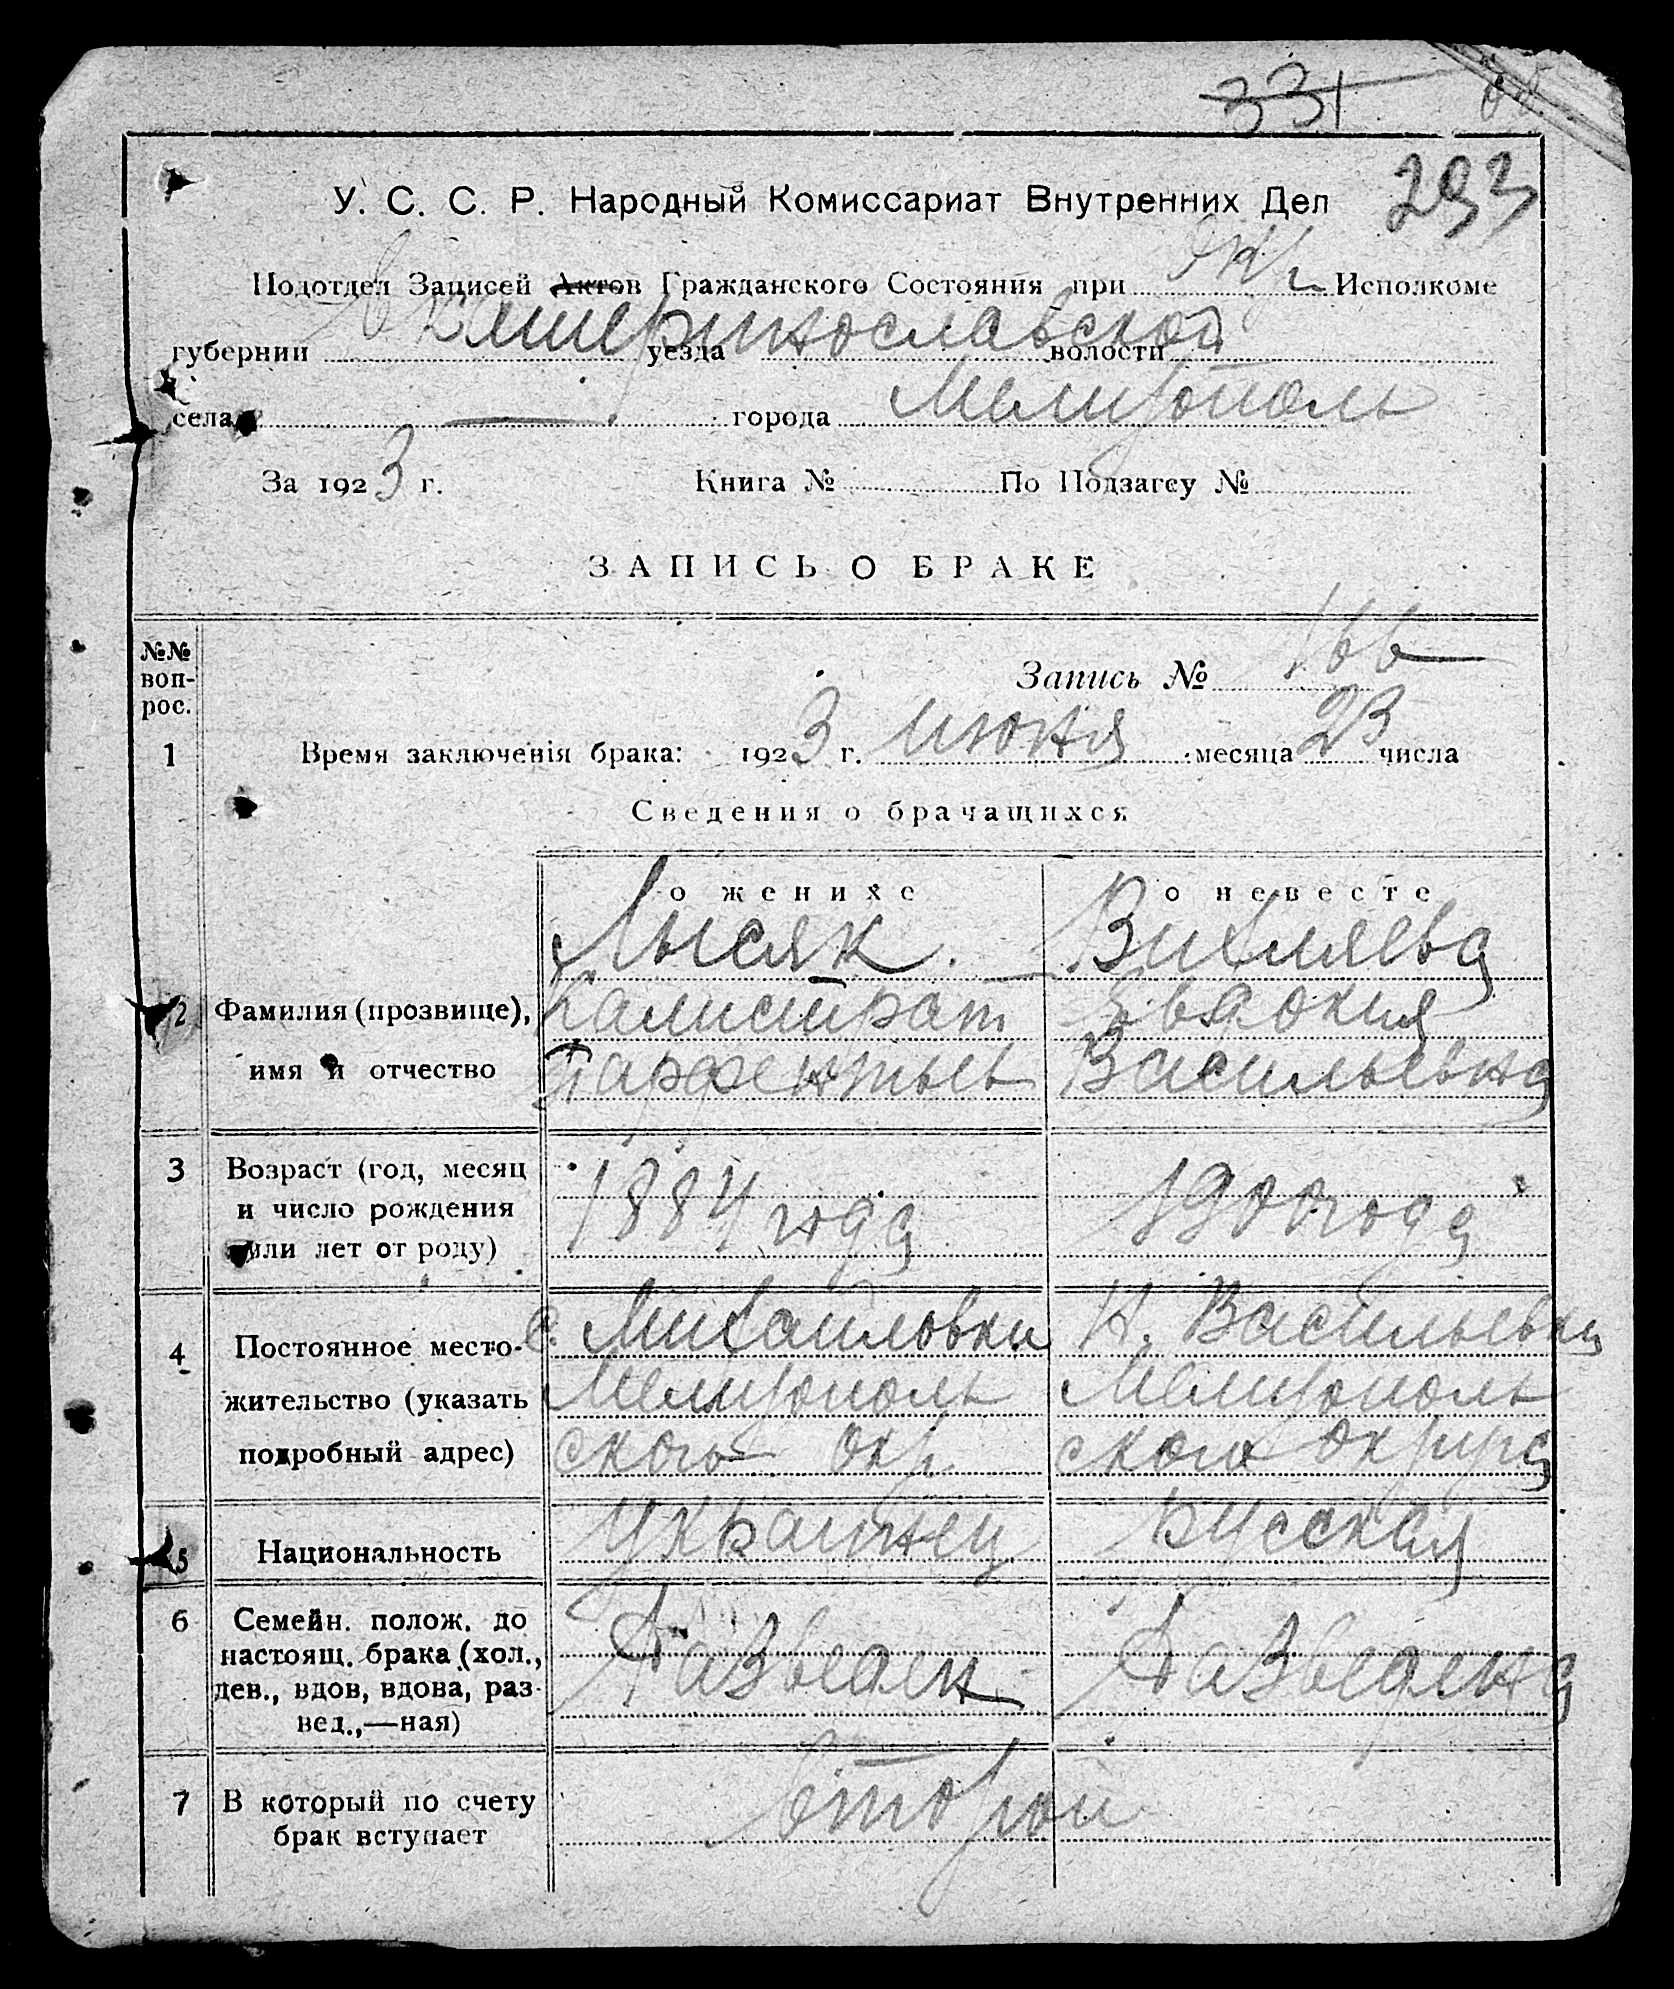 331
293
У. С. С. Р. Народный Комиссариат Внутренних Дел
Подотдел Записей Актов Гражданского Состояния при Окр Исполкоме
губернии Екатеринославской уезда волости
села — города Мелитополь
За 1923 г. Книга № По Подзагсу №
ЗАПИСЬ О БРАКЕ
№№ воп- рос.
Запись № 166
1 Время заключенія брака: 1923 г. июня месяца 23 числа
Сведения о брачащихся
о женихе о невесте
Лысяк Вихляева
2 Фамилия (прозвище), Калистрат Евдокия
имя и отчество Парфентьев Васильевна
3 Возраст (год, месяц
и число рождения 1884 года 1900 года
или лет от роду)
с. Михайловки Н. Васильевки
4 Постоянное место-
жительство (указать Мелитополь Мелитополь
подробный адрес) ского окр. ского округа
5 Национальность Украинец Русская
6 Семейн. полож. до
настоящ. брака (хол., Разведен Разведена
дев., вдов, вдова, раз-
вед.,—ная)
7 В который по счету второй
брак вступает